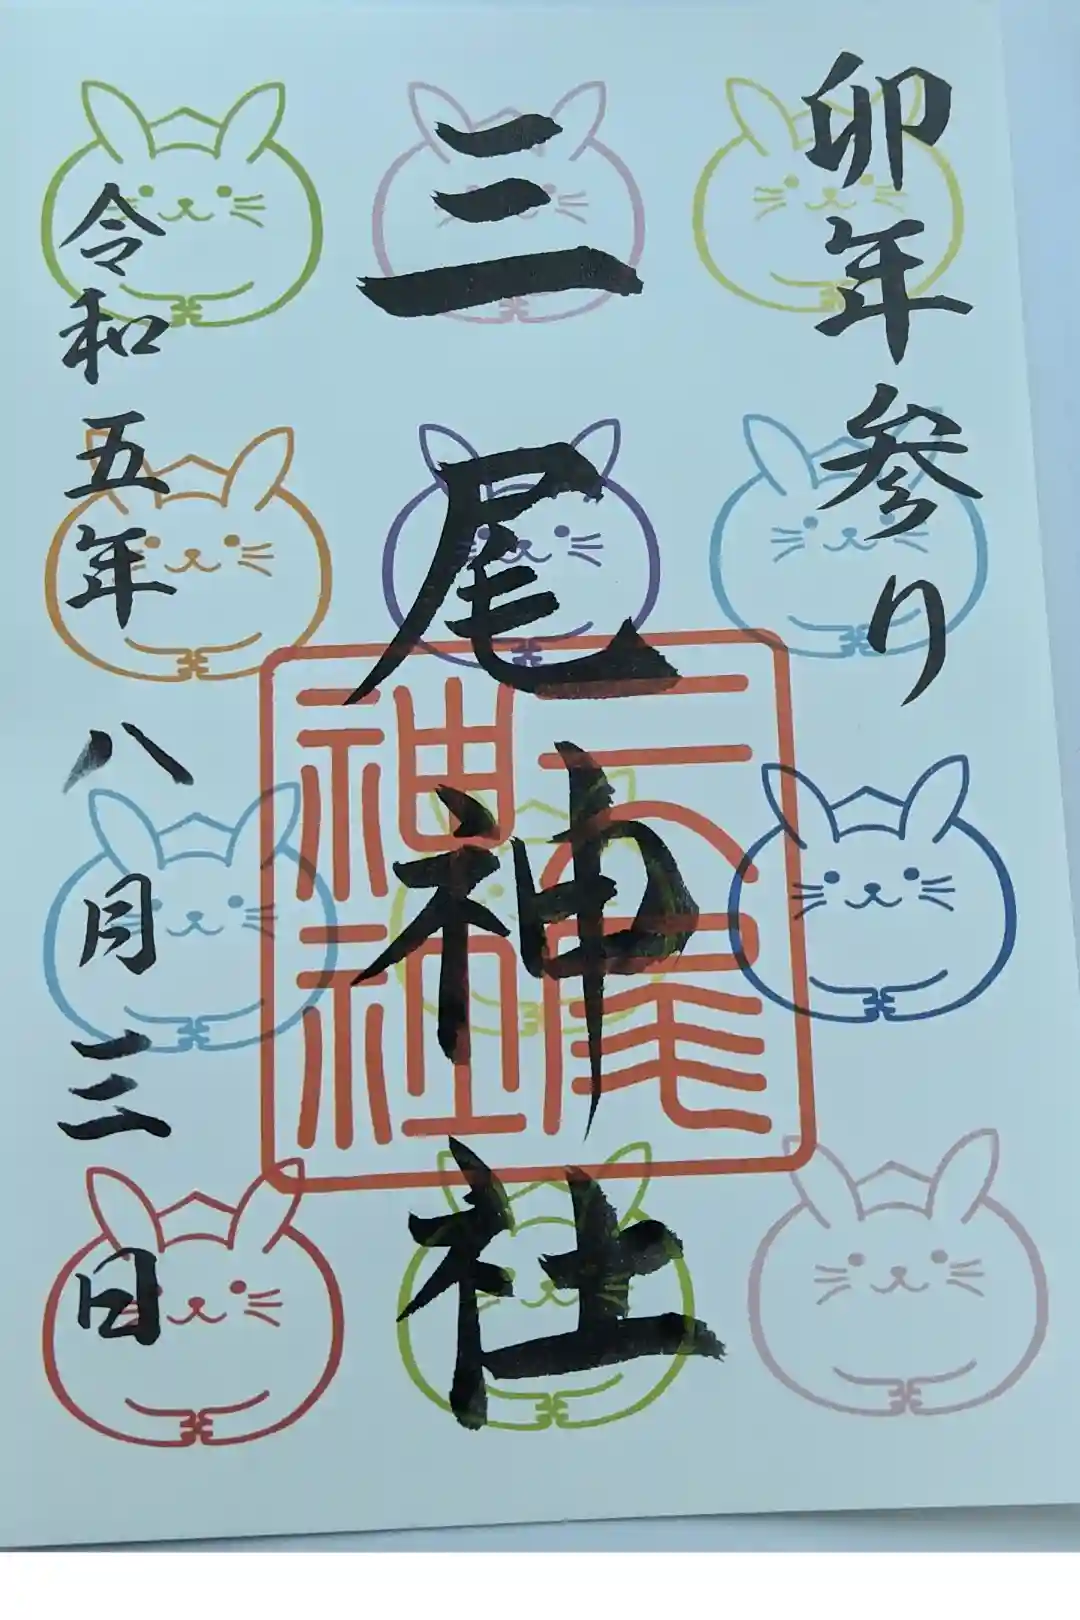 卯年参り
三尾神社
三尾
神社
令和五年八月三日